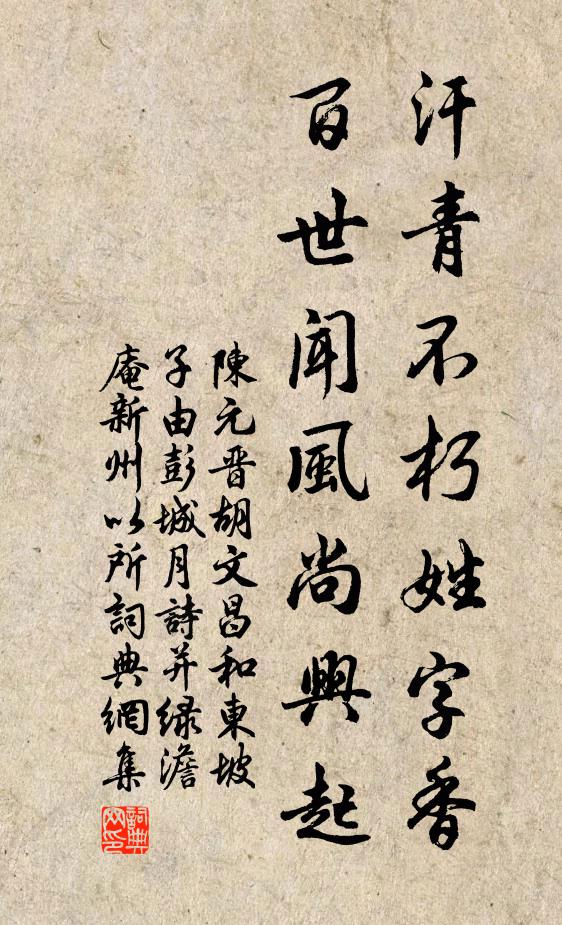 汗青不朽姓字香
百世聞風尚興起
陳元晋胡文昌和東坡
子由彭城月詩并緑澹
庵新州以所詞典網集
詞典网印